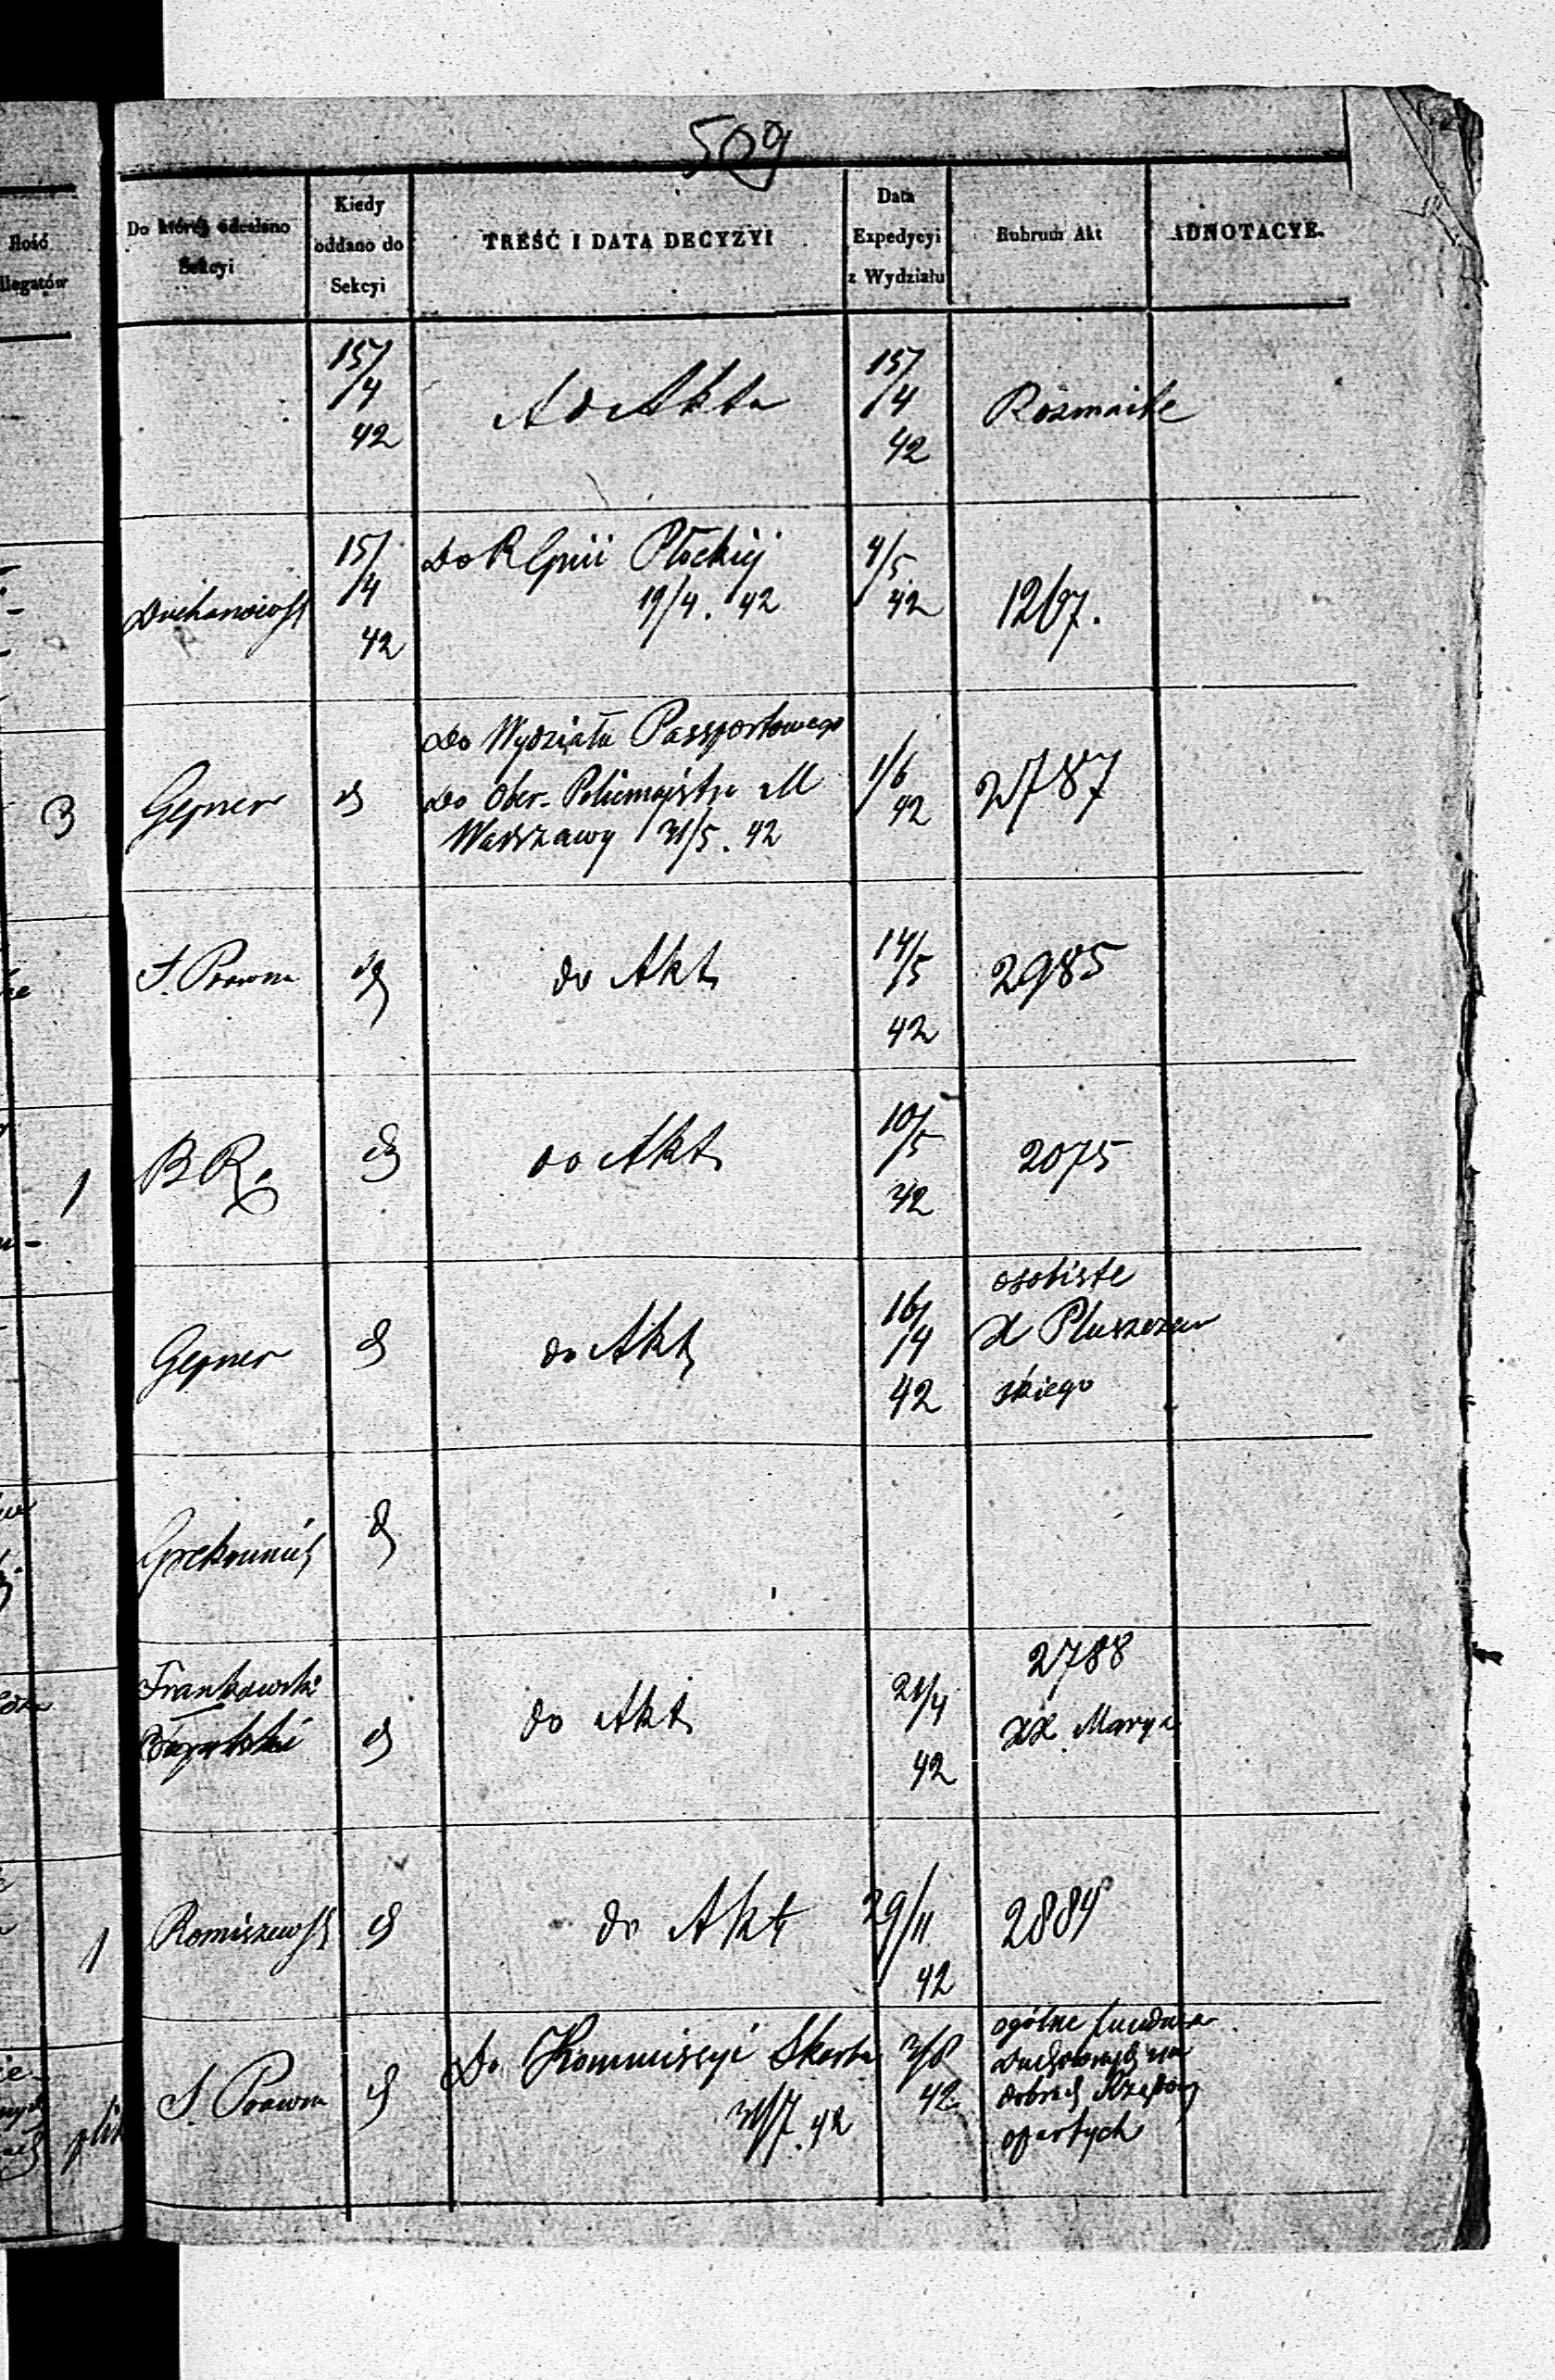 509
Ilość
llegatów
Do której odesłano
Sekcyi
Kiedy
oddano do
Sekcyi
TREŚĆ I DATA DECYZYI
Data
Expedycyi
z Wydziału
Rubrum Akt
ADNOTACYE.
15/4 42
Ad Akta
15/4 42
Rozmaite
15/4 42
Do R Gnii Płockiej
19/4. 42
4/5 42
3
Gepner
d
Do Wydziału Passportowego
Do Ober-Policmajstra M
Warszawy 31/5. 42
1/6 42
2787
S. Prawna
do Akt
14/5 42
2985
1
BR.
do Akt
10/5 42
2075
Gepner
do Akt
16/4 42
osobiste
X Pluszczew
skiego
Frankowski
do Akt
21/4 42
2788
XX Marya
1
Romiszewsk
do Akt
29/11 42
2884
S. Prawna
Do Kommissyi Skarbu
31/7. 42
3/8 42
ogólne fundusz
Duchownych na
dobrach Rządow
opartych